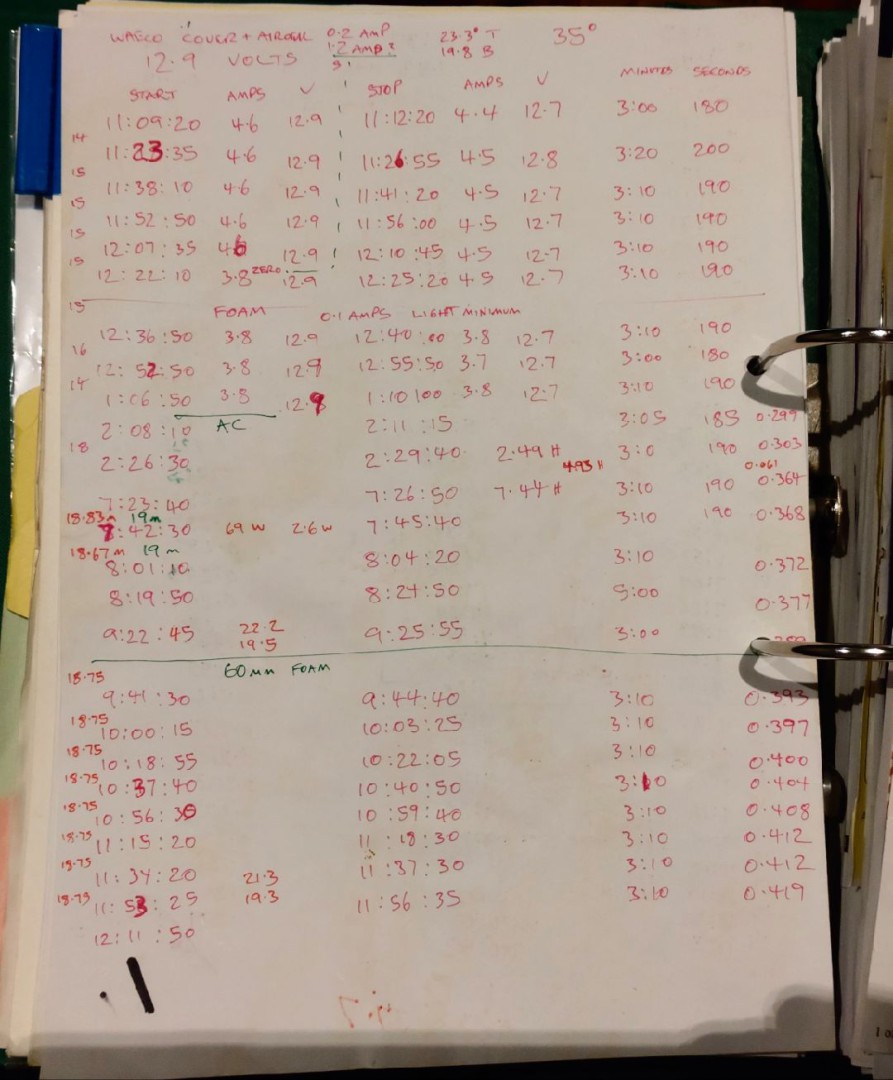 WAECO COVER + AIROGEL 0.2 AMP 23.3° T 35°
12.9 VOLTS 1.2 AMP? 19.8 B
START AMPS V STOP AMPS V MINUTES SECONDS
11:09:20 4.6 12.9 11:12:20 4.4 12.7 3:00 180
14
11:23:35 4.6 12.9 11:26:55 4.5 12.8 3:20 200
15
11:38:10 4.6 12.9 11:41:20 4.5 12.7 3:10 190
15
11:52:50 4.6 12.9 11:56:00 4.5 12.7 3:10 190
15
12:07:35 4.6 12.9 12:10:45 4.5 12.7 3:10 190
15
12:22:10 3.8 ZERO 12.9 12:25:20 4.5 12.7 3:10 190
15
FOAM 0.1 AMPS LIGHT MINIMUM
12:36:50 3.8 12.9 12:40:00 3.8 12.7 3:10 190
16
12:52:50 3.8 12.9 12:55:50 3.7 12.7 3:00 180
14
1:06:50 3.8 12.9 1:10:00 3.8 12.7 3:10 190
2:08:10 AC 2:11:15 3:05 185 0.299
18
2:26:30 2:29:40 2.49 H 3:0 190 0.303
4.93 H 0.061
7:23:40 7:26:50 7.44 H 3:10 190 0.364
18.83m 19m
7:42:30 69 W 2.6 W 7:45:40 3:10 190 0.368
18.67m 19m
8:01:10 8:04:20 3:10 0.372
8:19:50 8:24:50 5:00 0.377
9:22:45 22.2 9:25:55 3:00
19.5
60mm FOAM
18.75
9:41:30 9:44:40 3:10 0.393
18.75
10:00:15 10:03:25 3:10 0.397
18.75
10:18:55 10:22:05 3:10 0.400
18.75
10:37:40 10:40:50 3:10 0.404
18.75
10:56:30 10:59:40 3:10 0.408
18.75
11:15:20 11:18:30 3:10 0.412
18.75
11:34:20 21.3 11:37:30 3:10 0.412
18.75
11:53:25 19.3 11:56:35 3:10 0.419
12:11:50